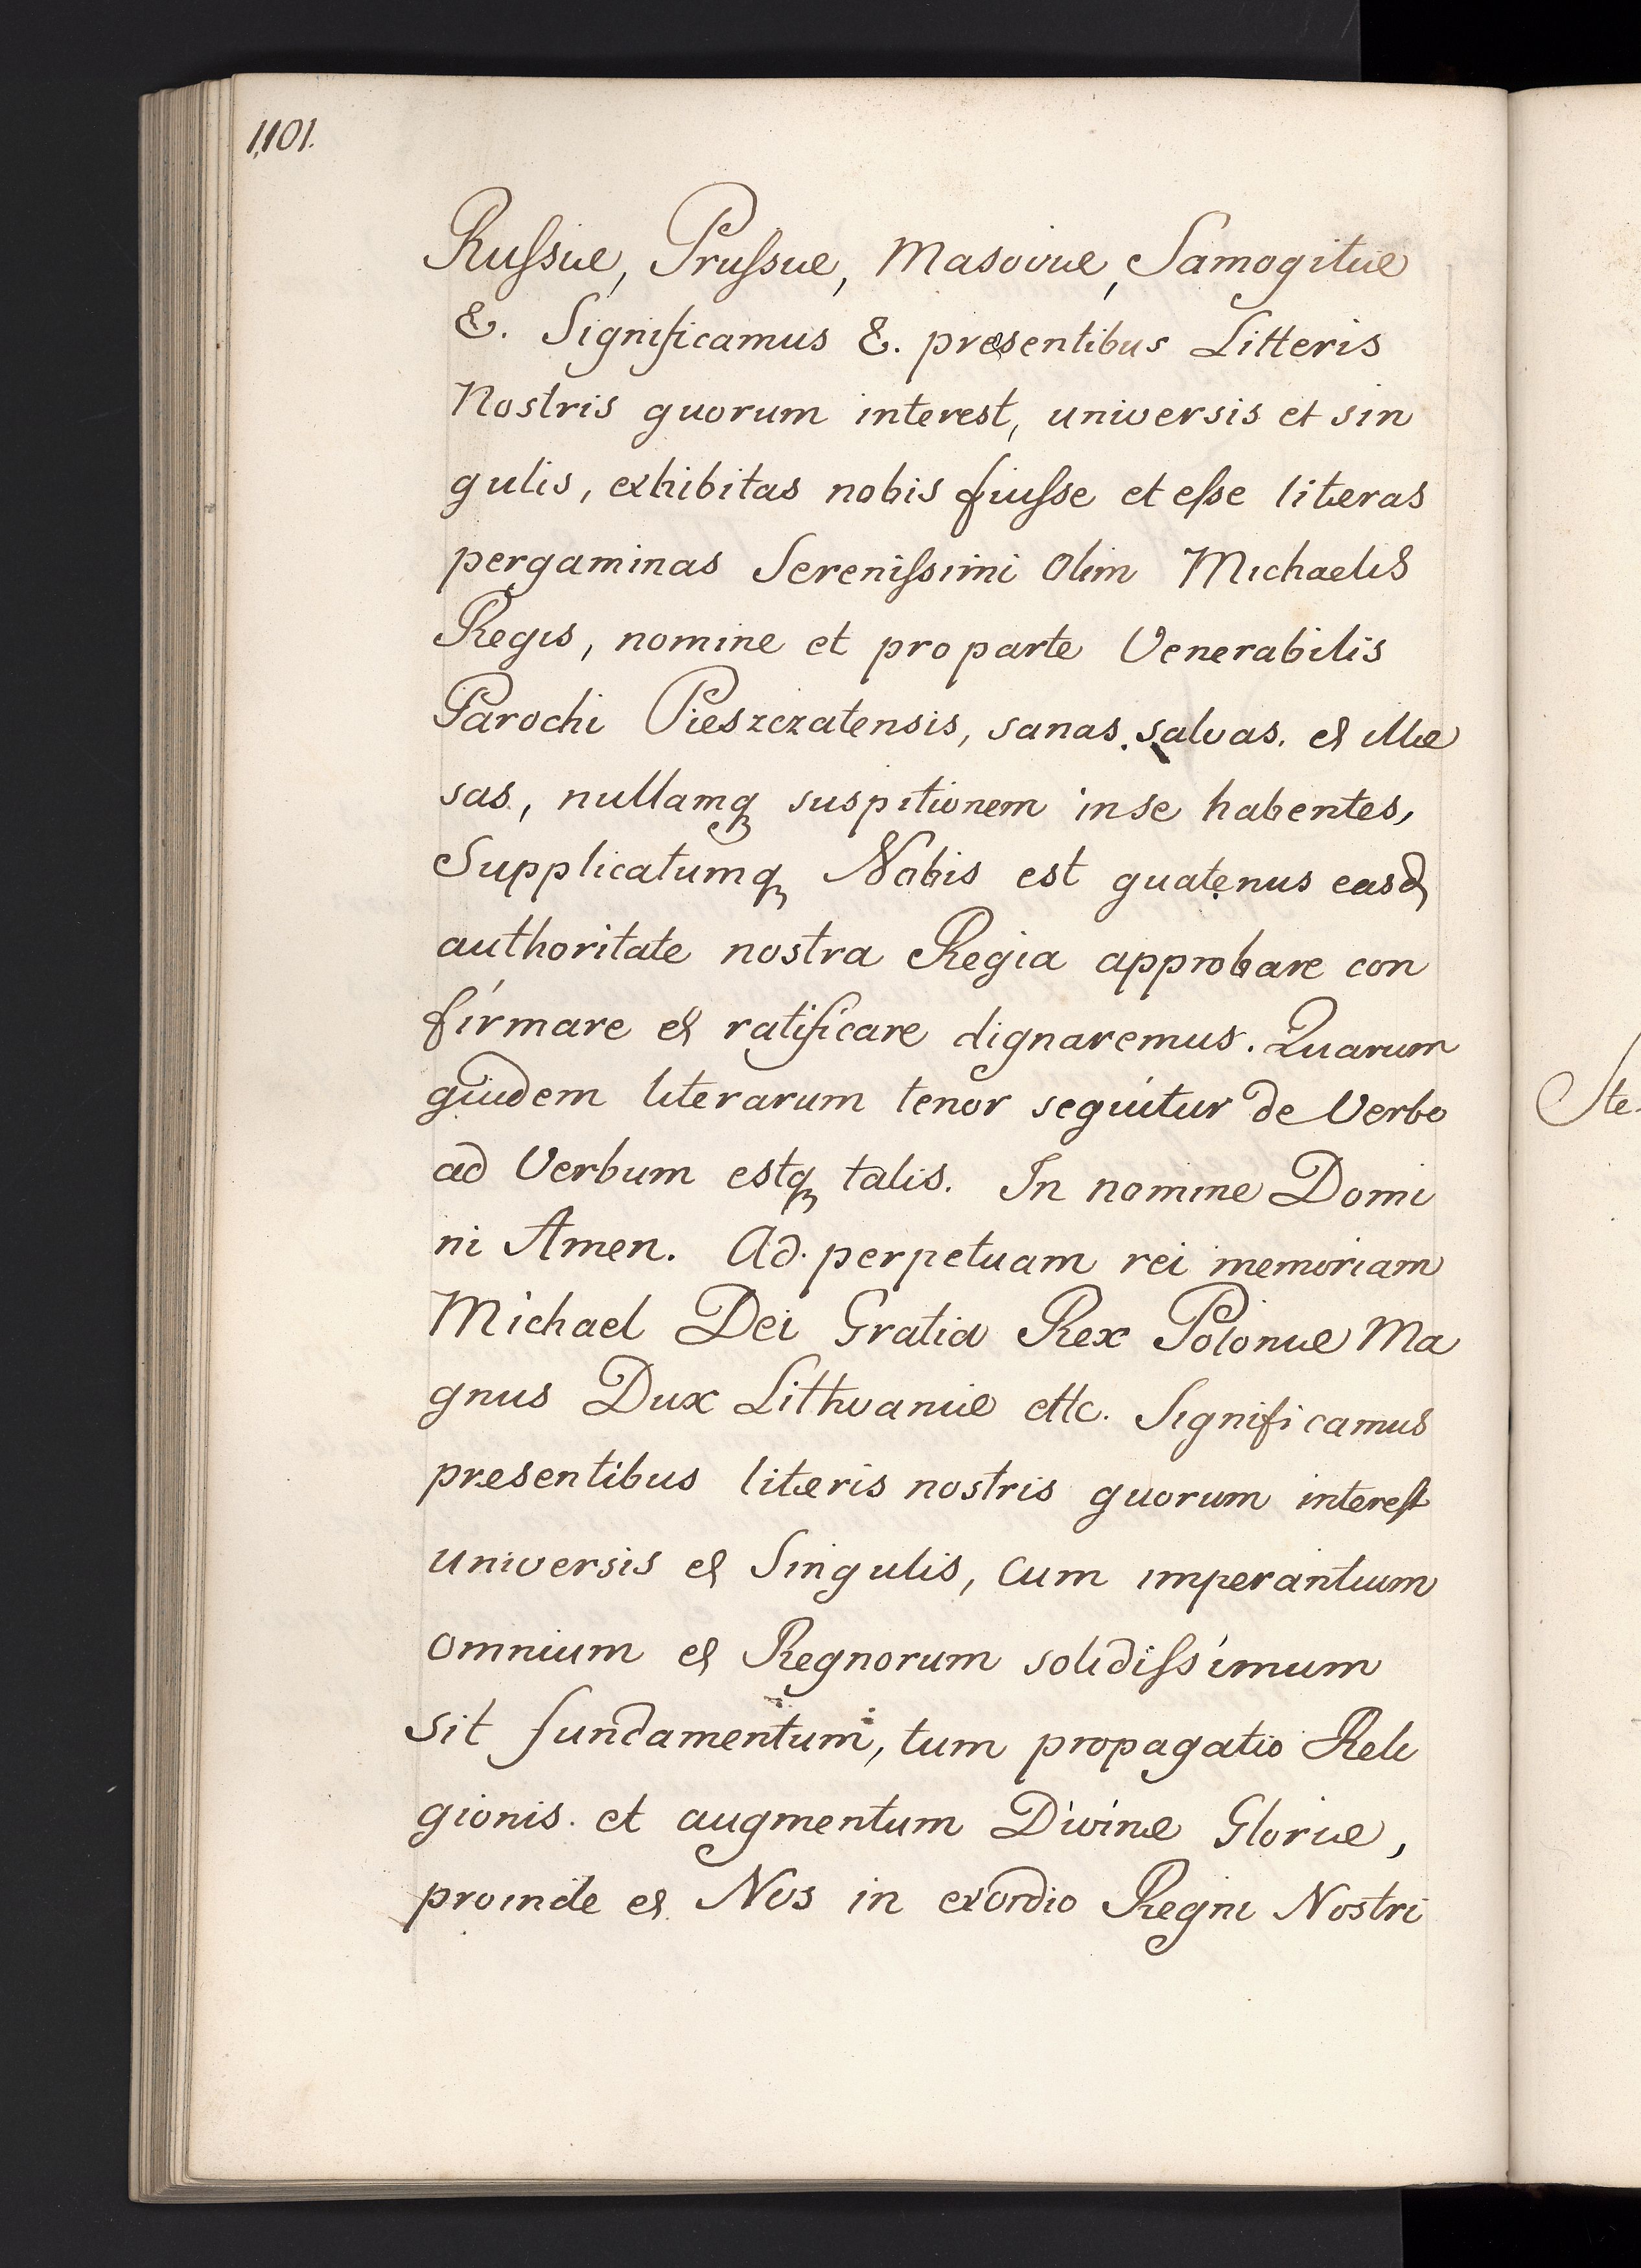 1101.
Rußiæ, Prußiæ, Masoviæ, Samogitiæ
&. Significamus &. præsentibus Litteris
Nostris quorum interest, universis et sin
gulis, exhibitas nobis fuiße et eße literas
pergaminas Sereníßimi Olim Michaelis
Regis, nomine et pro parte Venerabilis
Parochi Pieszczatensis, sanas, salvas. et illæ
sas, nullamq suspitionem in se habentes,
Supplicatumq Nobis est quatenus easd
authoritate nostra Regia approbare con
firmare et ratificare dignaremus. Quarum
quidem literarum tenor sequitur de Verbo
ad Verbum estq talis. In nomine Domi
ni Amen. Ad perpetuam rei memoriam
Michael Dei Gratia Rex Poloniæ Ma
gnus Dux Lithvaniæ ettc. Significamus
præsentibus literis nostris quorum interest
universis et Singulis, cum imperantium
omnium et Regnorum solidißimum
sit fundamentum, tum propagatio Reli
gionis et augmentum Divinæ Gloriæ,
proinde et Nos in exordio Regni Nostri
Ste